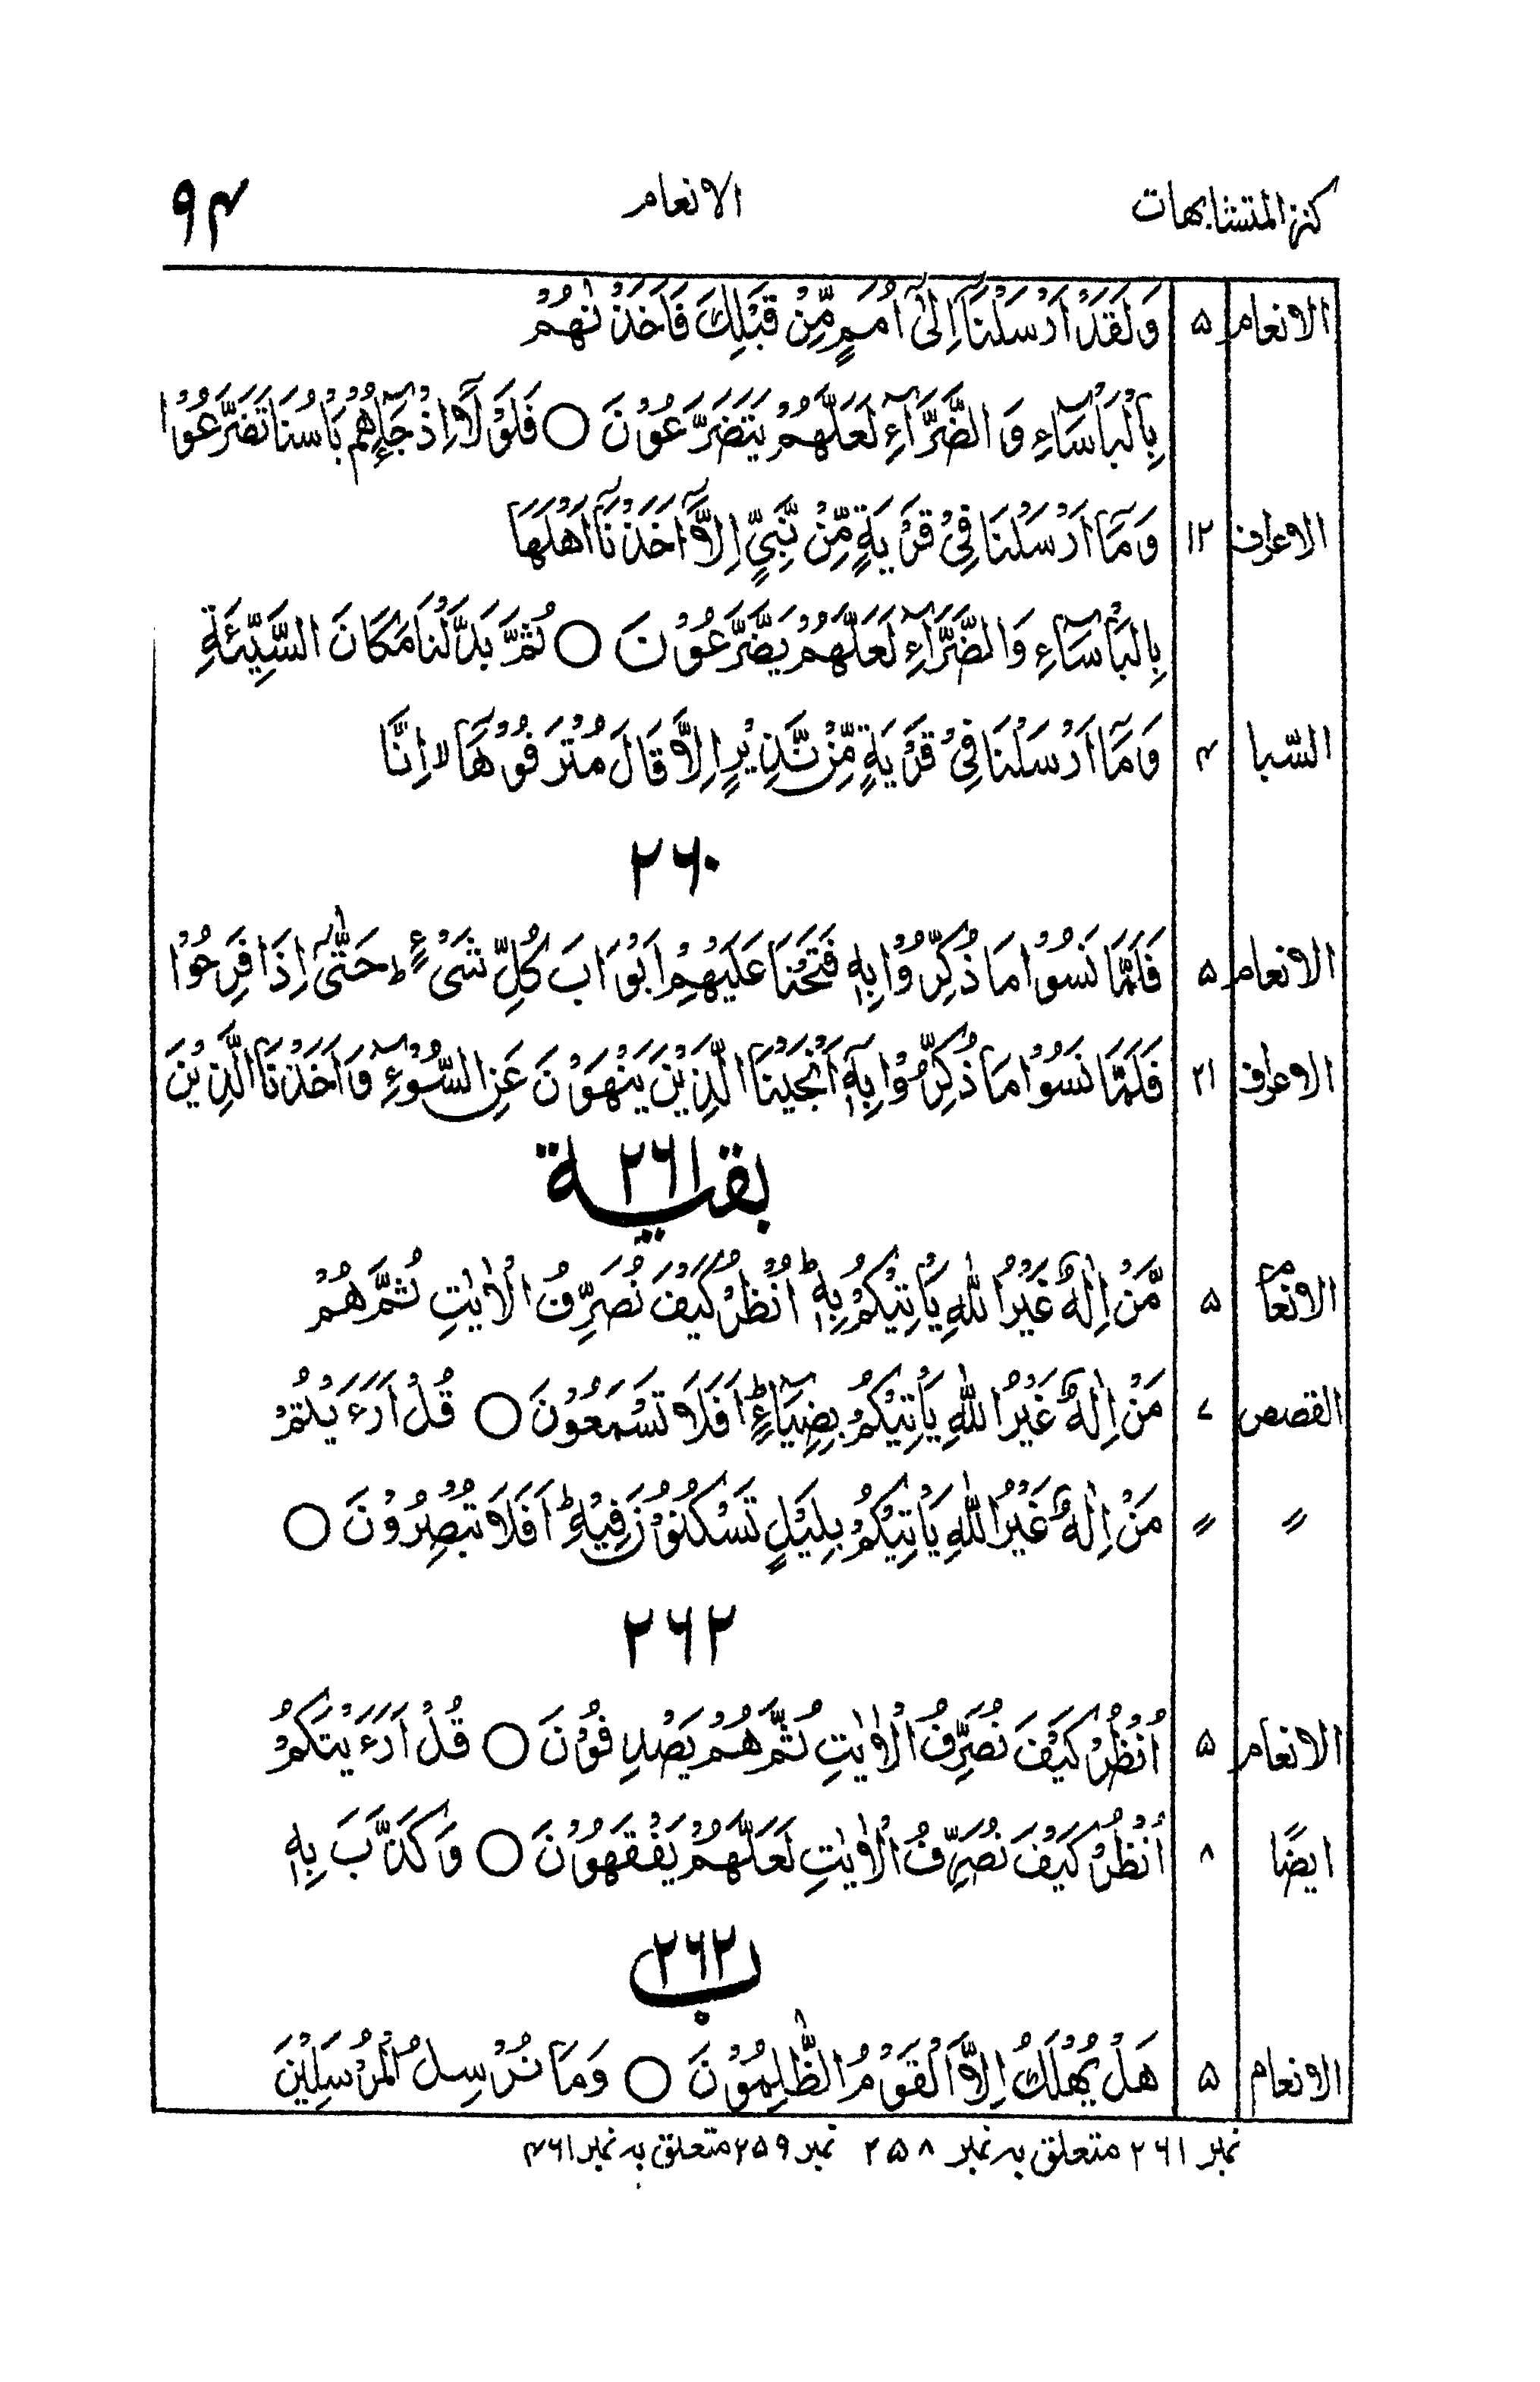 كنز المتشابهات الانعام ۹۴
الانعام ۵ وَلَقَدْ اَرْسَلْنَآ اِلٰٓى اُمَمٍ مِّنْ قَبْلِكَ فَاَخَذْنٰهُمْ
بِالْبَاْسَآءِ وَ الضَّرَّآءِ لَعَلَّهُمْ يَتَضَرَّعُوْنَ ○ فَلَوْلَآ اِذْ جَآءَهُمْ بَاْسُنَا تَضَرَّعُوْا
الاعراف ۱۲ وَمَآ اَرْسَلْنَا فِيْ قَرْيَةٍ مِّنْ نَّبِيٍّ اِلَّآ اَخَذْنَآ اَهْلَهَا
بِالْبَاْسَآءِ وَالضَّرَّآءِ لَعَلَّهُمْ يَضَّرَّعُوْنَ ○ ثُمَّ بَدَّلْنَا مَكَانَ السَّيِّئَةِ
السّبا ۴ وَمَآ اَرْسَلْنَا فِيْ قَرْيَةٍ مِّنْ نَّذِيْرٍ اِلَّا قَالَ مُتْرَفُوْهَآ ۙ اِنَّا
۲۶۰
الانعام ۵ فَلَمَّا نَسُوْا مَا ذُكِّرُوْا بِهٖ فَتَحْنَا عَلَيْهِمْ اَبْوَابَ كُلِّ شَيْءٍ ؕ حَتّٰٓى اِذَا فَرِحُوْا
الاعراف ۲۱ فَلَمَّا نَسُوْا مَا ذُكِّرُوْا بِهٖٓ اَنْجَيْنَا الَّذِيْنَ يَنْهَوْنَ عَنِ السُّوْٓءِ وَاَخَذْنَا الَّذِيْنَ
بقية ۲۶۱
الانعام ۵ مَّنْ اِلٰهٌ غَيْرُ اللّٰهِ يَاْتِيْكُمْ بِهٖ ؕ اُنْظُرْ كَيْفَ نُصَرِّفُ الْاٰيٰتِ ثُمَّ هُمْ
القصص ۷ مَنْ اِلٰهٌ غَيْرُ اللّٰهِ يَاْتِيْكُمْ بِضِيَآءٍ ؕ اَفَلَا تَسْمَعُوْنَ ○ قُلْ اَرَءَيْتُمْ
〃 〃 مَنْ اِلٰهٌ غَيْرُ اللّٰهِ يَاْتِيْكُمْ بِلَيْلٍ تَسْكُنُوْنَ فِيْهِ ؕ اَفَلَا تُبْصِرُوْنَ ○
۲۶۲
الانعام ۵ اُنْظُرْ كَيْفَ نُصَرِّفُ الْاٰيٰتِ ثُمَّ هُمْ يَصْدِفُوْنَ ○ قُلْ اَرَءَيْتَكُمْ
ايضًا ۸ اُنْظُرْ كَيْفَ نُصَرِّفُ الْاٰيٰتِ لَعَلَّهُمْ يَفْقَهُوْنَ ○ وَكَذَّبَ بِهٖ
۲۶۲ ب
الانعام ۵ هَلْ يُهْلَكُ اِلَّا الْقَوْمُ الظّٰلِمُوْنَ ○ وَمَا نُرْسِلُ الْمُرْسَلِيْنَ
نمبر ۲۶۱ متعلق بہ نمبر ۲۵۸ نمبر ۲۵۹ متعلق بہ نمبر ۴۶۱